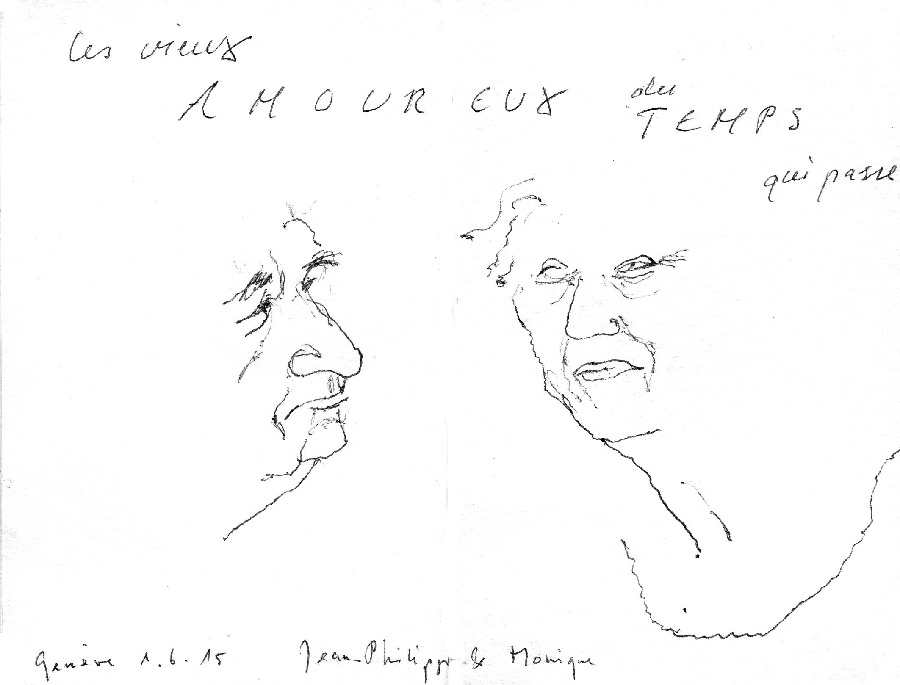 les vieux
AMOUREUX du
TEMPS
qui passe
Genève 1.6.15 Jean-Philippe & Monique